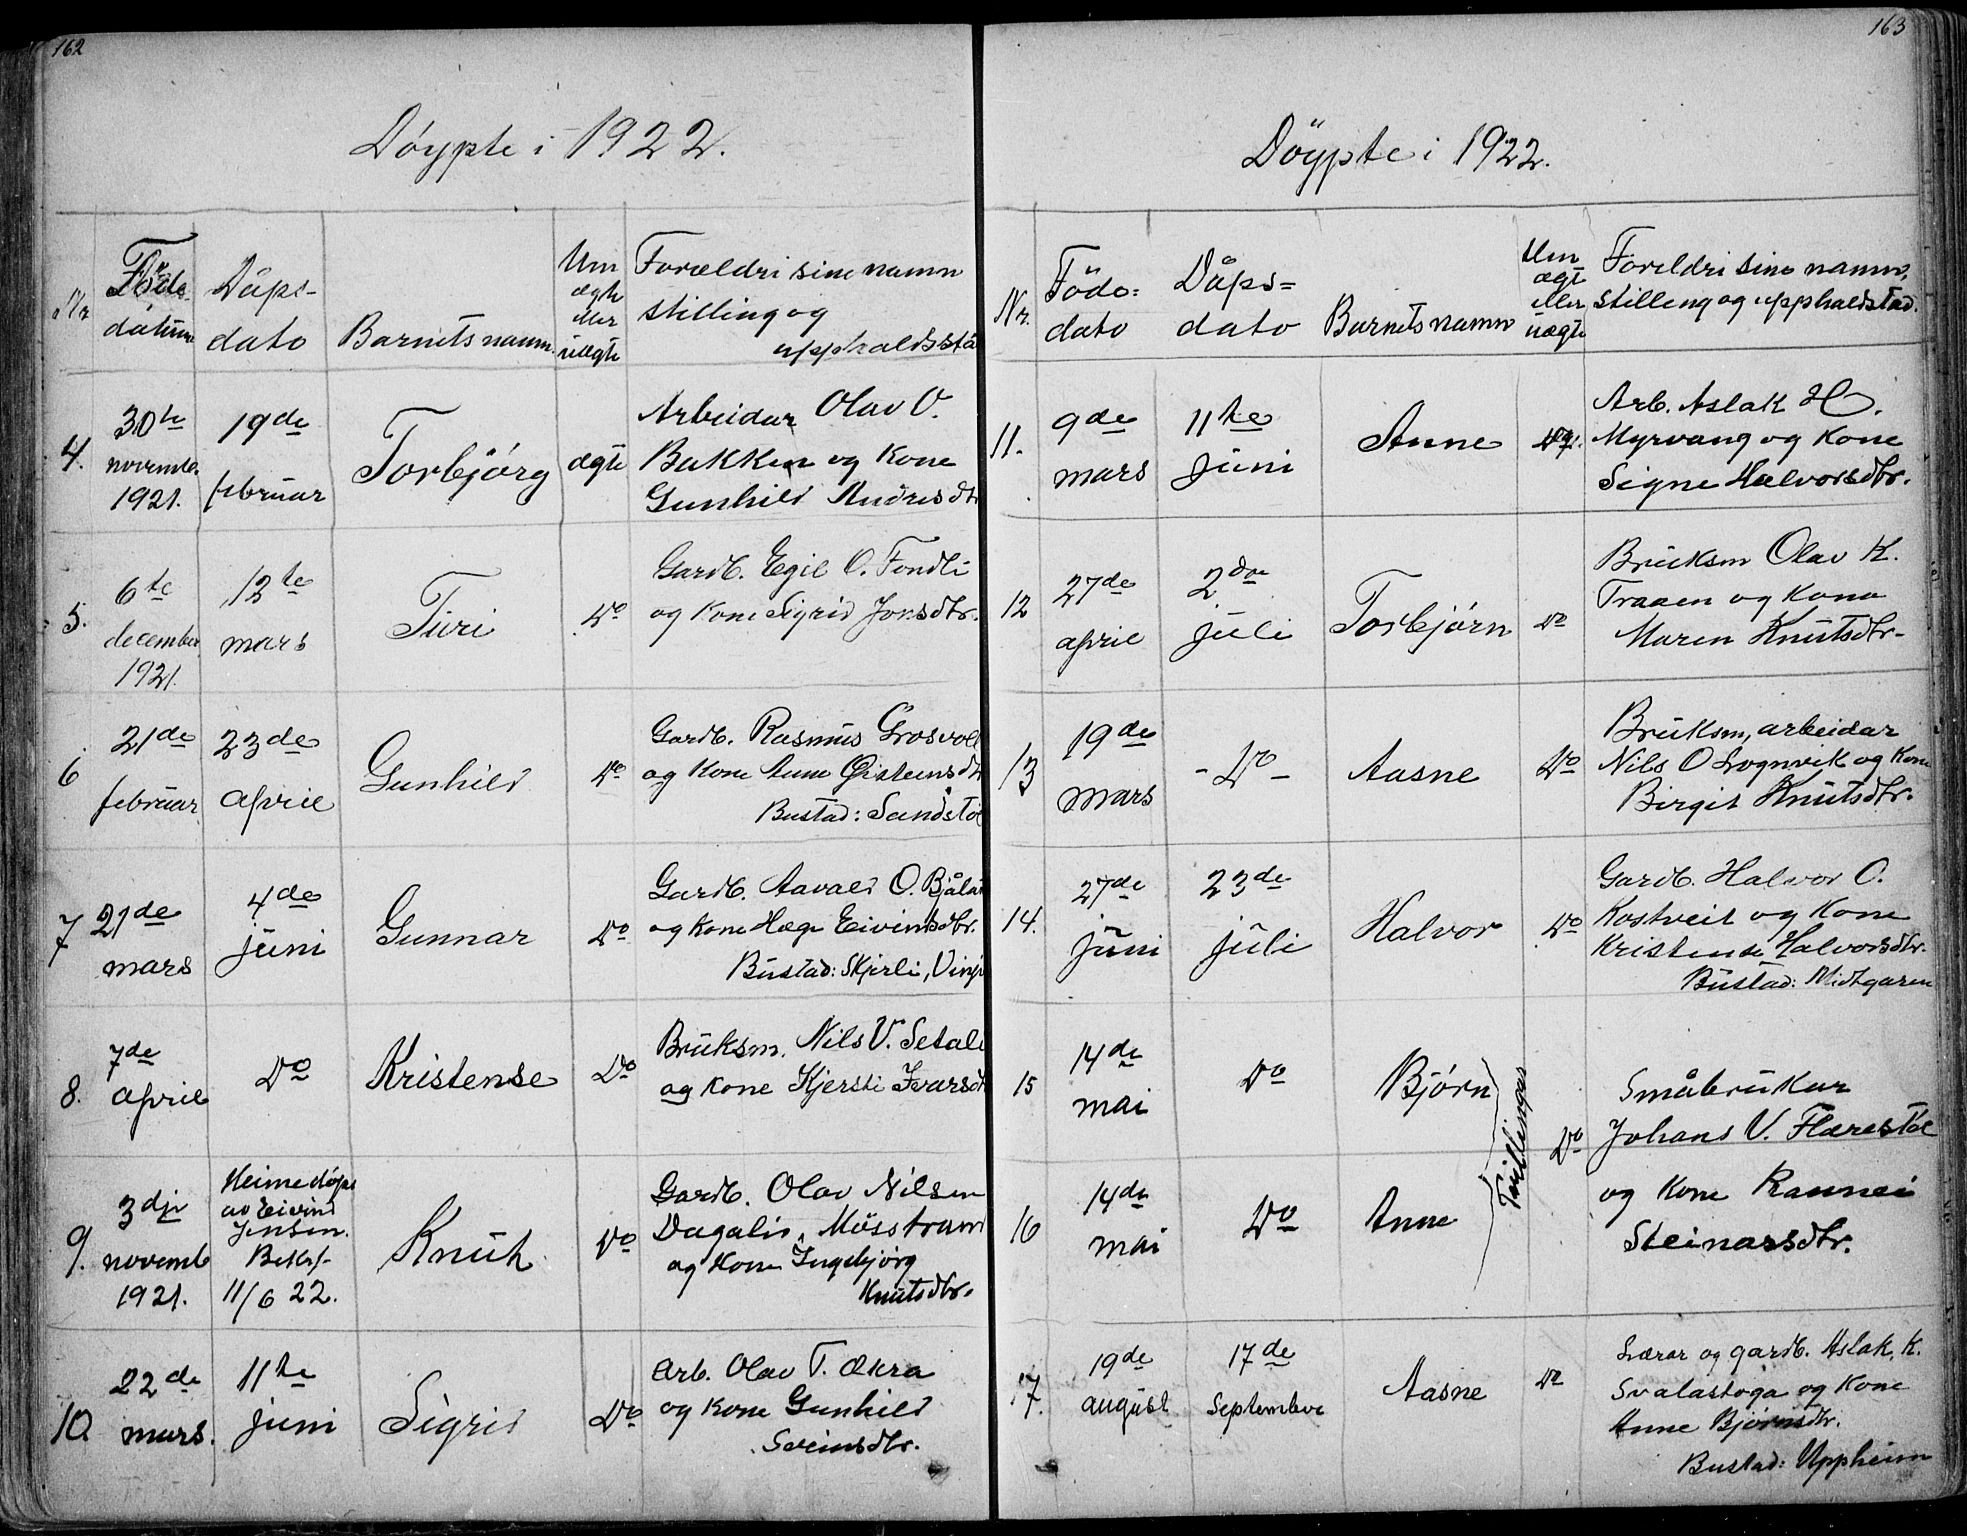 162
Döypte i 1922.
Nr
Föde-
datum
Dåps-
dato
Barnets namn.
Um
ægte
eller
uægte
Foreldri sine namn
stilling og
upphaldsstad
4.
30te
novembr
1921.
19de
februar
Torbjörg
ægte
Arbeidar Olav O.
Bakken og Kone
Gunhild Andresdtr
5.
6te
december
1921.
12te
mars
Turi
Do
Gardb. Egil O. Fondli
og Kone Sigrid Jonsdtr.
6
21de
februar
23de
april
Gunhild
Do
Gardb. Rasmus Grosvoll
og Kone Anne Øisteinsdtr
Bustad: Sandstöl
7
21de
mars
4de
juni
Gunnar
Do
Gardb. Aavald O. Bjåland
og Kone Hæge Eivindsdtr.
Bustad: Skjerli, Vinje
8.
7de
april
Do
Kristense
Do
Bruksm. Nils V. Setali
og Kone Kjersti Ivarsdtr
9.
3dje
novemb
1921.
Heimedöpt
av Eivind
Jensen.
Bekr.
11/6 22.
Knut
Do
Gardb. Olav Nilsen
Dagalid, Mösstrand
og Kone Ingebjörg
Knutsdtr.
10.
22de
mars.
11te
juni
Sigrid
Do
Arb. Olav T. Ækra
og Kone Gunhild
Sveinsdtr.
163
Döypte i 1922.
Nr.
Föde-
dato
Dåps-
dato
Barnets namn
Um
ægt
eller
uægte
Foreldri sine namn,
stilling og upphaldstad.
11.
9de
mars
11te
juni
Anne
Arb. Aslak H.
Myrvang og Kone
Signe Halvorsdtr.
12
27de
april
2dre
juli
Torbjørn
Do
Bruksm Olav K.
Traaen og Kona
Maren Knutsdtr.
13
19de
mars
- Do -
Aasne
Do
Bruksm, arbeidar
Nils O Lognvik og Kone
Birgit Knutsdtr.
14.
27de
juni
23de
juli
Halvor
Do
Gardb. Halvor O.
Kostveit og Kone
Kristense Halvorsdtr.
Bustad: Midtgaren
15
14de
mai
Do
Björn
Tvillingar
Do
Småbrukar
Johans V. Flærestöl
16
14de
mai
Do
Anne
og Kone Rannei
Steinarsdtr.
17.
19de
august
17de
September
Aasne
Do
Lærar og gardb. Aslak K.
Svalastoga og Kone
Anne Bjørnsdtr.
Bustad: Uppheim